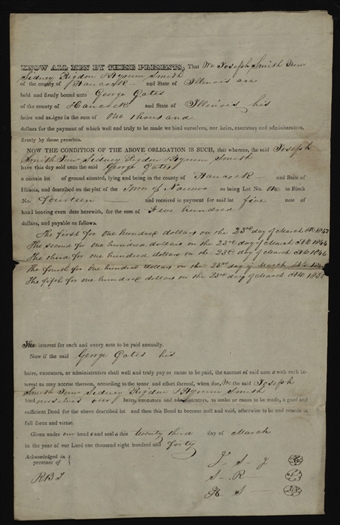 KNOW ALL MEN BY THESE PRESENTS, That We Joseph Smith Junr
Sidney Rigdon & Hyrum Smith
of the county of Hancock and State of Illinois are
held and firmly bound unto George Gates
of the county of Hancock and State of Illinois his
heirs and assigns in the sum of One thousand
dollars for the payment of which well and truly to be made we bind ourselves, our heirs, executors and administrators,
firmly by these presents.
NOW THE CONDITION OF THE ABOVE OBLIGATION IS SUCH, that whereas, the said Joseph
Smith Junr Sidney Rigdon & Hyrum Smith
have this day sold unto the said George Gates
a certain lot of ground situated, lying and being in the county of Hancock and State of
Illinois, and described on the plot of the Town of Nauvoo as being Lot No. One in Block
No. Fourteen and received in payment for said lot five notes of
hand bearing even date herewith, for the sum of Five hundred
dollars, and payable as follows.
The first for one hundred dollars on the 23rd day of March
The second for one hundred dollars on the 23rd day of March
The third for one hundred dollars on the 23rd day of March
The fourth for one hundred dollars on the 23rd day of March
The fifth for one hundred dollars on the 23rd day of March
The interest for each and every note to be paid annually.
Now if the said George Gates his
heirs, executors, or administrators shall well and truly pay or cause to be paid, the amount of said notes with
interest as may accrue thereon, according to the tenor and effect thereof, when due, We the said Joseph
Smith Junr Sidney Rigdon & Hyrum Smith
bind ourselves our heirs, executors and administrators, to make or cause to be made, a good and
sufficient Deed for the above described lot and then this Bond to become null and void, otherwise to be and remain in
full force and virtue.
Given under our hands and seals this twenty third day of March
in the year of our Lord one thousand eight hundred and forty
Acknowledged in
presence of
J S J
S R
H S
R B T